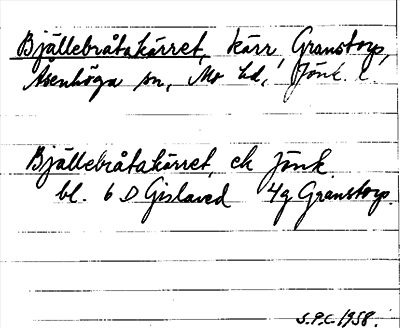 Bjällebråtakärret, kärr, Granstorp,
Åsenhöga sn, Mo hd, Jönk. l.
Bjällebråtakärret, ek Jönk.
bl. 6 D Gislaved 4g Granstorp.
S.P.C. 1958.